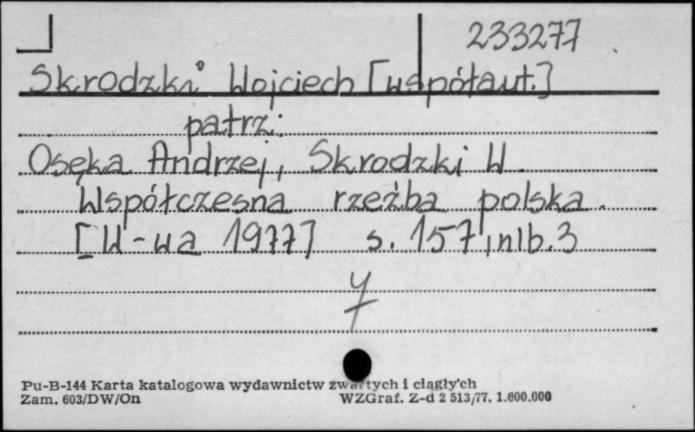 233277
Skrodzki Wojciech [współaut.]
patrz:
Osęka Andrzej, Skrodzki W
Współczesna rzeźba polska.
[W-wa 1977] s. 157, nlb. 3
Pu-B-144 Karta katalogowa wydawnictw zwartych i ciągłych
Zam. 603/DW/On WZGraf. Z-d 2 513/77. 1.600.000